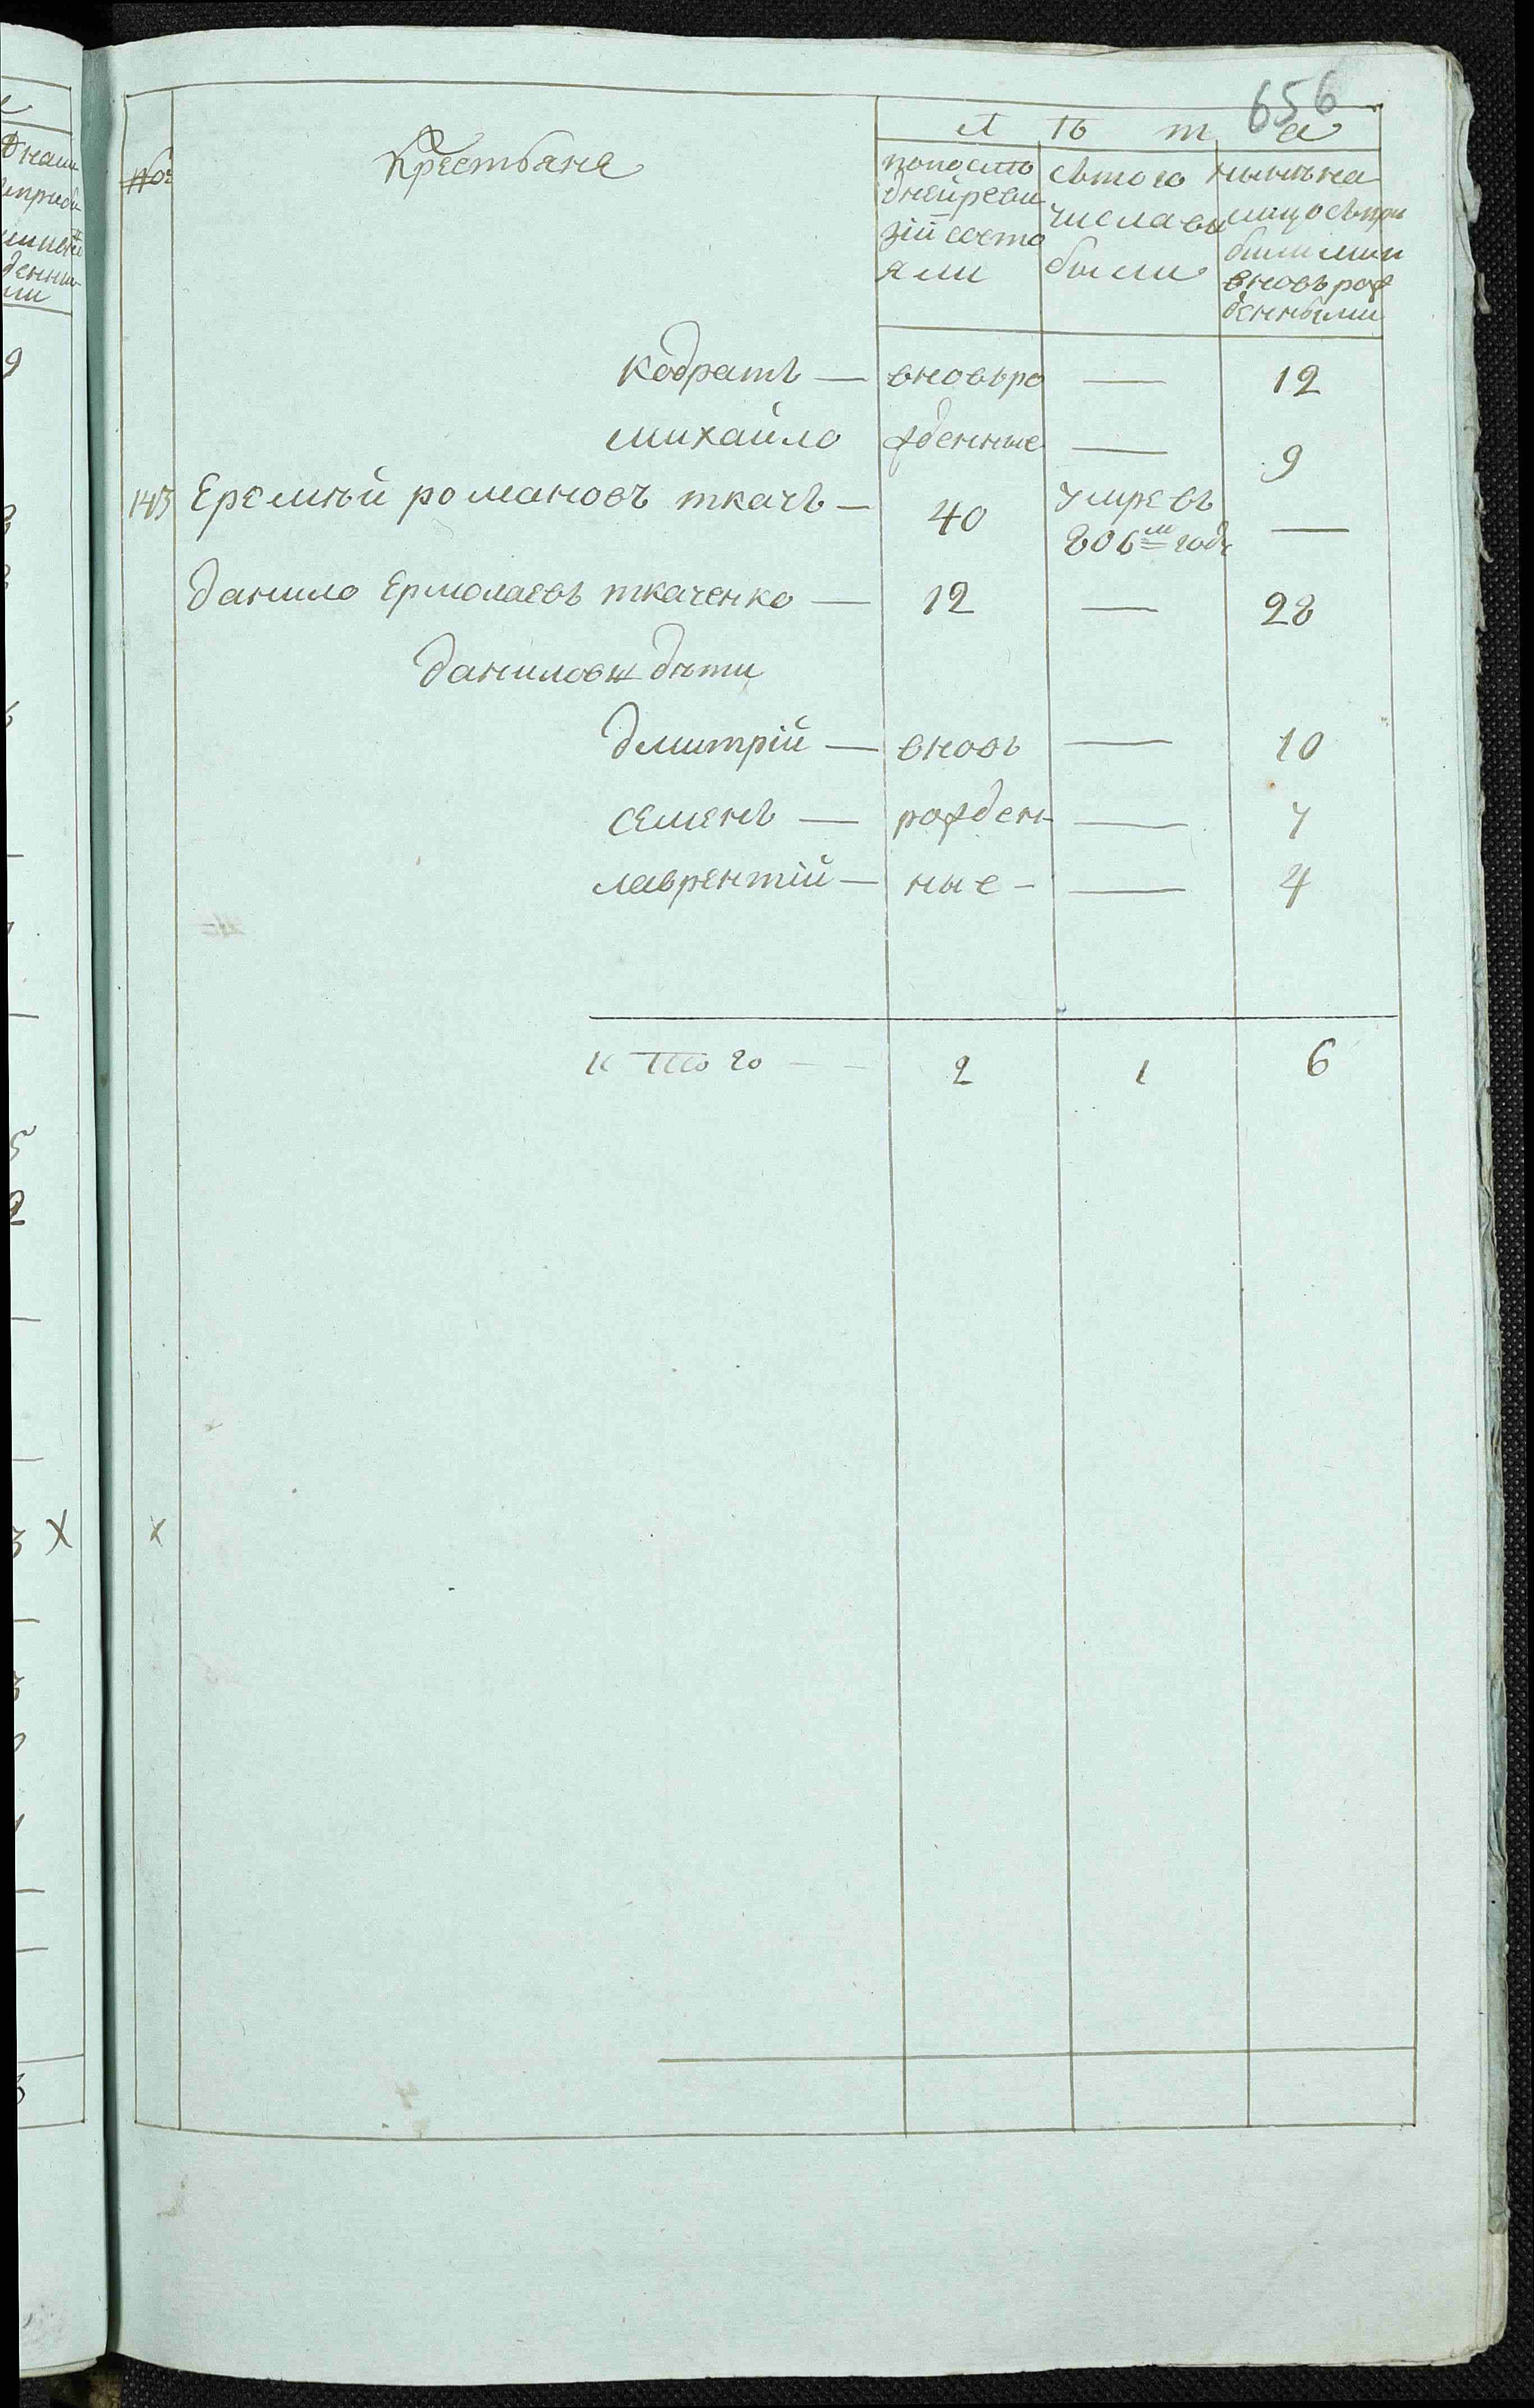 656
№:
Крестьяне
Л ѣ т а
попосло
днейреви
зіи состо
яли
сътого
числавы
были
нынѣна
лицосъпри
былимии
вновьрож
денными
кодратъ — вновьро — 12
михайло жденные — 9
143 Еремѣй романовъ ткачъ — 40 умревъ 806м годѣ —
данило Ермолаевъ ткаченко — 12 — 28
даниловы дѣти
дмитрій — вновь — 10
семенъ — рожден- — 7
лаврентій — ные - — 4
Итого — — 2 1 6
х
х